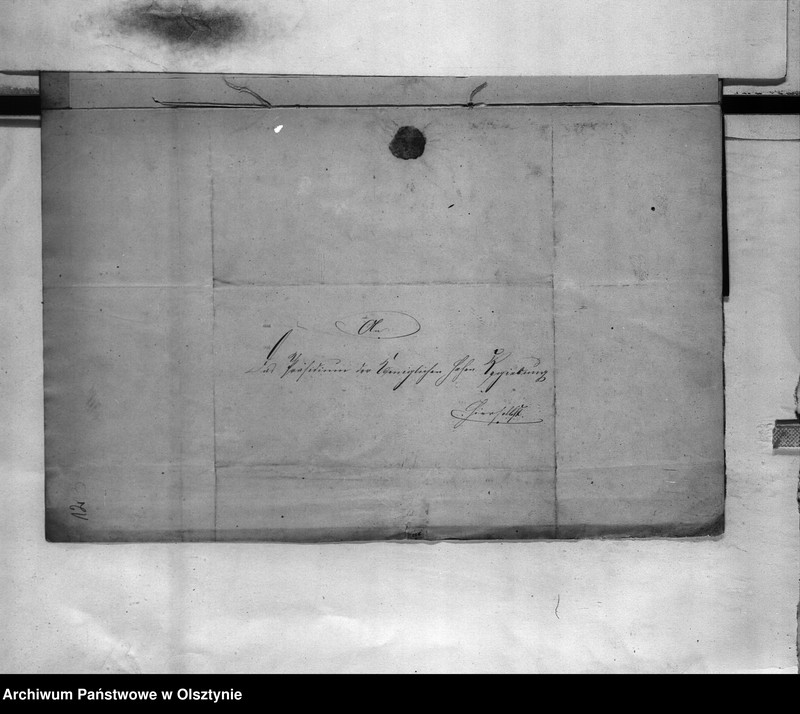 An
Das Präsidium der Königlichen hohen Regierung
hierselbst.
12
Archiwum Państwowe w Olsztynie